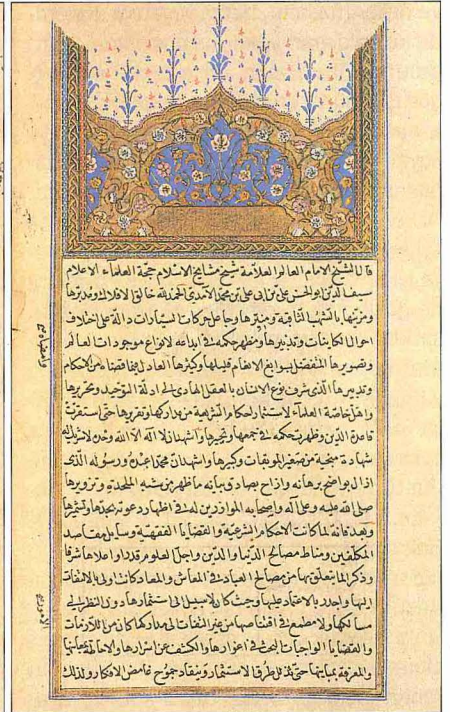 قال الشيخ الامام العالم العلامة شيخ مشايخ الاسلام حجة العلماء الاعلام
سيف الدين ابو الحسن علي بن ابى على بن محمد الامدى الحمد لله خالق الافلاك ومديرها
ومزينها بالشهب الثاقبة ومنيرها وجاعل حركات السيارات دالة على اختلاف
احوال الكاينات وتدبيرها ومظهر حكمه فى ابداعه لانواع موجودات العالم
وتصويرها المتفضل بسوابغ الانعام قليلها وكثيرها العادل فيما قضاه من الاحكام
وتدبيرها الذى شرف نوع الانسان بالعقل الهادى الى ادلة التوحيد وتحريرها
واهل خاصة العلماء لاستثمار احكام الشريعة من مداركها وتقريرها حتى استقرت
قاعدة الدين وظهرت حكمه فى جمعها وتحبيرها واشهد ان لا اله الا الله وحده لا شريك له
شهادة منجية من صغير الموبقات وكبيرها واشهد ان محمدا عبده ورسوله الذى
ازال بواضح برهانه وازاح بصادق بيانه ما ظهر من شبه الملحدة وتزويرها
صلى الله عليه وعلى اله واصحابه الموازرين له فى اظهار دعوته بحدها وتشميرها
وبعد فانه لما كانت الاحكام الشرعية والقضايا الفقهية وسايل مقاصد
المكلفين ومناط مصالح الدنيا والدين واجل العلوم قدرا واعلاها شرفا
وذكرا لما يتعلق بها من مصالح العباد فى المعاش والمعاد كانت اولى بالالتفات
اليها واجدر بالاعتماد عليها وحيث كان لا سبيل الى استثمارها دون النظر الى
مسالكها ولا مطمع فى اقتناصها من غير التفات الى مداركها كان من اللازمات
والقضايا الواجبات البحث فى اغوارها والكشف عن اسرارها والاحاطة بمعانيها
والمعرفة بمبانيها حتى تذلل طرق الاستثمار وينقاد جموح غامض الافكار ولذلك